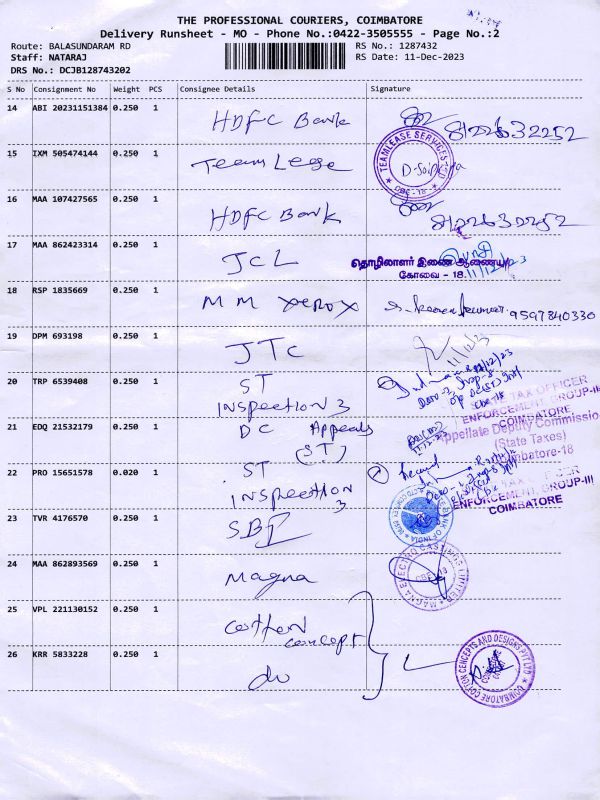 THE PROFESSIONAL COURIERS, COIMBATORE
Delivery Runsheet - MO - Phone No.:0422-3505555 - Page No.:2
Route: BALASUNDARAM RD
RS No.: 1287432
Staff: NATARAJ
RS Date: 11-Dec-2023
DRS No.: DCJB128743202
S No Consignment No Weight PCS Consignee Details Signature
14 ABI 20231151384 0.250 1 HDFC Bank
15 IXM 505474144 0.250 1 Team Lease
TEAMLEASE SERVICES LTD
CBE-18
16 MAA 107427565 0.250 1 HDFC Bank
17 MAA 862423314 0.250 1 JCL
தொழிலாளர் இணை ஆணையர்
கோவை - 18. 11/12/23
18 RSP 1835669 0.250 1 MM xerox 9597840330
19 DPM 693198 0.250 1 JTC 11/12/23
20 TRP 6539408 0.250 1 ST
Inspection 3
TAX OFFICER
ENFORCEMENT GROUP-III
COIMBATORE
21 EDQ 21532179 0.250 1 DC Appeals
(ST)
Appellate Deputy Commissio
(State Taxes)
Coimbatore-18
22 PRO 15651578 0.020 1 ST
Inspection
3
TAX OFFICER
ENFORCEMENT GROUP-III
COIMBATORE
23 TVR 4176570 0.250 1 SBI
24 MAA 862893569 0.250 1 Magna
MAGNA ELECTRO CASTINGS LIMITED
25 VPL 221130152 0.250 1 cotton
concept
26 KRR 5833228 0.250 1 do
COIMBATORE COTTON CONCEPTS AND DESIGNS PVT LTD